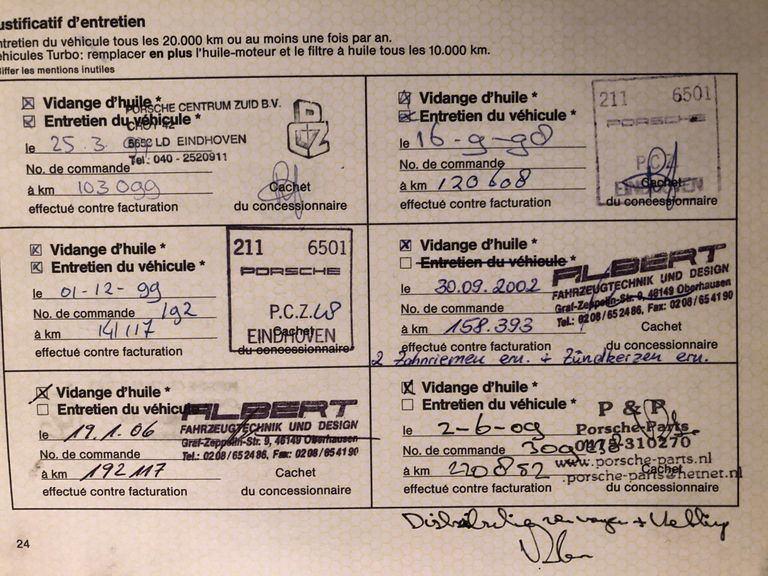 ustificatif d'entretien
ntretien du véhicule tous les 20.000 km ou au moins une fois par an.
éhicules Turbo: remplacer en plus l'huile-moteur et le filtre à huile tous les 10.000 km.
iffer les mentions inutiles
Vidange d'huile *
Entretien du véhicule *
PORSCHE CENTRUM ZUID B.V.
5652 LD EINDHOVEN
Tel.: 040 - 2520911
le 25.3.
No. de commande
à km 103099
Cachet
effectué contre facturation du concessionnaire
Vidange d'huile *
Entretien du véhicule *
211 6501
PORSCHE
P.C.Z.
EINDHOVEN
le 16-9-98
No. de commande
à km 120608
Cachet
effectué contre facturation du concessionnaire
Vidange d'huile *
Entretien du véhicule *
211 6501
PORSCHE
P.C.Z.
EINDHOVEN
le 01-12-99
No. de commande 192
à km 141117
Cachet
effectué contre facturation du concessionnaire
Vidange d'huile *
Entretien du véhicule *
ALBERT
FAHRZEUGTECHNIK UND DESIGN
Graf-Zeppelin-Str. 9, 46149 Oberhausen
Tel.: 02 08 / 65 24 86, Fax: 02 08 / 65 41 90
le 30.09.2002
No. de commande
à km 158.393
Cachet
effectué contre facturation du concessionnaire
2 Zahnriemen ern. + Zündkerzen ern.
Vidange d'huile *
Entretien du véhicule
ALBERT
FAHRZEUGTECHNIK UND DESIGN
Graf-Zeppelin-Str. 9, 46149 Oberhausen
Tel.: 02 08 / 65 24 86, Fax: 02 08 / 65 41 90
le 19.1.06
No. de commande
à km 192117
Cachet
effectué contre facturation du concessionnaire
Vidange d'huile *
Entretien du véhicule *
P & P
Porsche-Parts
310270
www.porsche-parts.nl
porsche-parts@hetnet.nl
le 2-6-09
No. de commande
à km 220882
Cachet
effectué contre facturation du concessionnaire
24